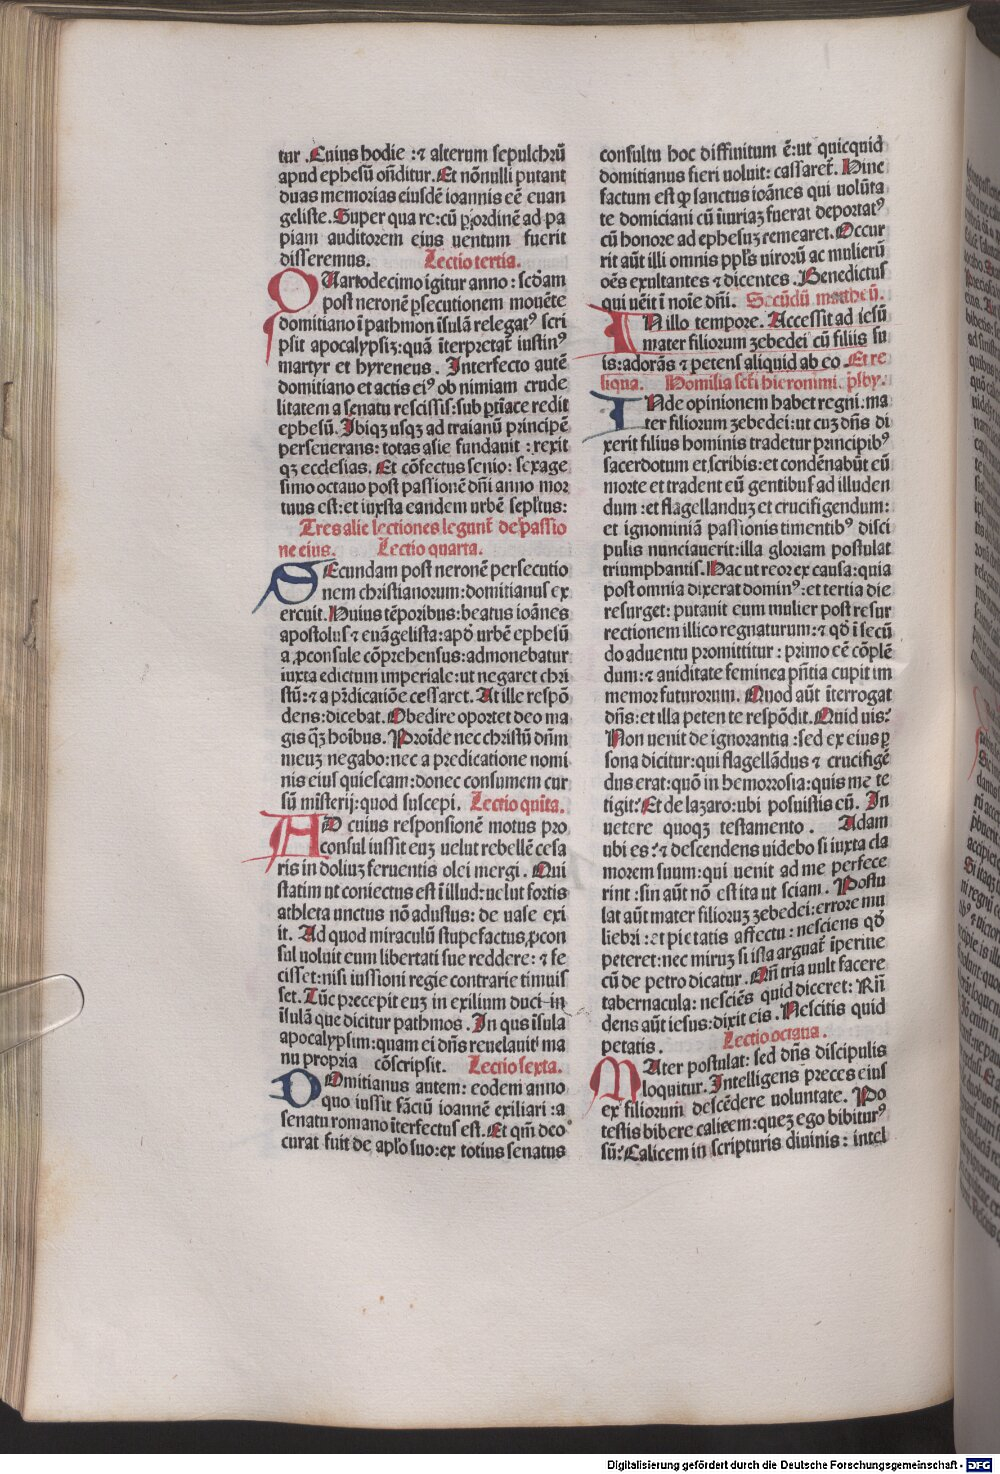 tur .Cuius hodie :⁊ alterum sepulchrū
apud ephesū oñditur.Et nōnulli putant
duas memorias eiusdē ioannis eē euan
geliste.Super qua re:cū ꝓordinē ad pa
piam auditorem eius uentum fuerit
disseremus. Lectio tertia.
QUartodecimo igitur anno : scd̄am
post neronē ꝑsecutionem mouēte
domitiano ī pathmon īsulā relegatꝰ scri
psit apocalypsiʒ:quā īterpretat̄ iustinꝰ
martyr et hyreneus. Interfecto autē
domitiano et actis eiꝰ ob nimiam crude
litatem a senatu rescissis:sub ꝑtiace redit
ephesū.Ibiqʒ usqʒ ad traianū principē
perseuerans: totas asie fundauit :rexit
qʒ ecclesias. Et cōfectus senio: sexage
simo octauo post passionē dñi anno mor
tuus est:et iuxta eandem urbē sepl̄tus:
Tres alie lectiones legunt̄ de passio
ne eius. Lectio quarta.
SEcundam post neronē persecutio
nem christianorum:domitianus ex
ercuit.Huius tēporibus:beatus ioānes
apostolus ⁊ euāgelista:apd̄ urbē ephesū
a ꝓconsule cōprehensus:admonebatur
iuxta edictum imperiale:ut negaret chri
stū:⁊ a pr̄dicatiōe cessaret. At ille respō
dens:dicebat.Obedire oportet deo ma
gis qʒ̄ hoībus. Proīde nec christū dn̄m
meuʒ negabo:nec a predicatione nomi
nis eius quiescam:donec consumem cur
sū misterij:quod suscepi. Lectio quīta.
AD cuius responsionē motus pro
consul iussit euʒ uelut rebellē cesa
ris in doliuʒ feruentis olei mergi . Qui
statim ut coniectus est ī illud:uelut fortis
athleta unctus nō adustus: de uase exi
it. Ad quod miraculū stupefactus,ꝓcon
sul uoluit eum libertati sue reddere: ⁊ fe
cisset:nisi iussioni regie contrarie timuis
set.Tūc precepit euʒ in exilium duci in
īsulā que dicitur pathmos .In qua īsula
apocalypsim:quam ei dñs reuelauit ma
nu propria cōscripsit. Lectio sexta.
DOmitianus autem: eodem anno
quo iussit sāctū ioannē exiliari :a
senatu romano īterfectus est.Et qm̄ deo
curat fuit de apl̄o suo:ex totius senatus
consultu hoc diffinitum ē:ut quicquid
domitianus fieri uoluit: cassaret̄. Hinc
factum est ꝙ sanctus ioānes qui uolūta
te domiciani cū iīuriaʒ fuerat deportatꝰ
cū honore ad ephesuʒ remearet.Occur
rit aūt illi omnis ppl̄s uirorū ac mulierū
oēs exultantes ⁊ dicentes. Benedictus
qui uēit ī noīe dñi. Secūdū matheū.
IN illo tempore. Accessit ad iesū
mater filiorum ʒebedei cū filiis su
is:adorās ⁊ petens aliquid ab eo .Et re
liqua. Homilia scī hieronimi p̄sby.
INde opinionem habet regni.ma
ter filiorum ʒebedei:ut cuʒ dñs di
xerit filius hominis tradetur principibꝰ
sacerdotum et scribis:et condēnabūt eū
morte et tradent eū gentibus ad illuden
dum :et flagellanduʒ et crucifigendum:
et ignominiā passionis timentibꝰ disci
pulis nunciauerit:illa gloriam postulat
triumphantis.Hac ut reor ex causa:quia
post omnia dixerat dominꝰ:et tertia die
resurget: putauit eum mulier post resur
rectionem illico regnaturum:⁊ qd̄ ī secū
do aduentu promittitur : primo eē cōplē
dum:⁊ auiditate feminea pñtia cupit im
memor futurorum. Quod aūt īterrogat
dñs:et illa peten te respōdit.Quid uis?
Non uenit de ignorantia :sed ex eius ꝑ
sona dicitur:qui flagellādus ⁊ crucifigē
dus erat:quō in hemorrosia:quis me te
tigit?Et de lazaro:ubi posuistis eū. In
uetere quoqʒ testamento . Adam
ubi es?⁊ descendens uidebo si iuxta cla
morem suum:qui uenit ad me perfece
rint :sin aūt nō est ita ut sciam. Postu
lat aūt mater filioruʒ ʒebedei:errore mu
liebri :et pietatis affectu: nesciens qd̄
peteret:nec miruʒ si ista arguat̄ īperitie
cū de petro dicatur.Qñ tria uult facere
tabernacula: nesciēs quid diceret: Rñ
dens aūt iesus:dixit eis .Nescitis quid
petatis. Lectio octaua.
MAter postulat: sed dñs discipulis
loquitur.Intelligens preces eius
ex filiorum descēdere uoluntate. Po
testis bibere calicem:queʒ ego bibiturꝰ
sū?Calicem in scripturis diuinis: intel
Digitalisierung gefördert durch die Deutsche Forschungsgemeinschaft - DFG